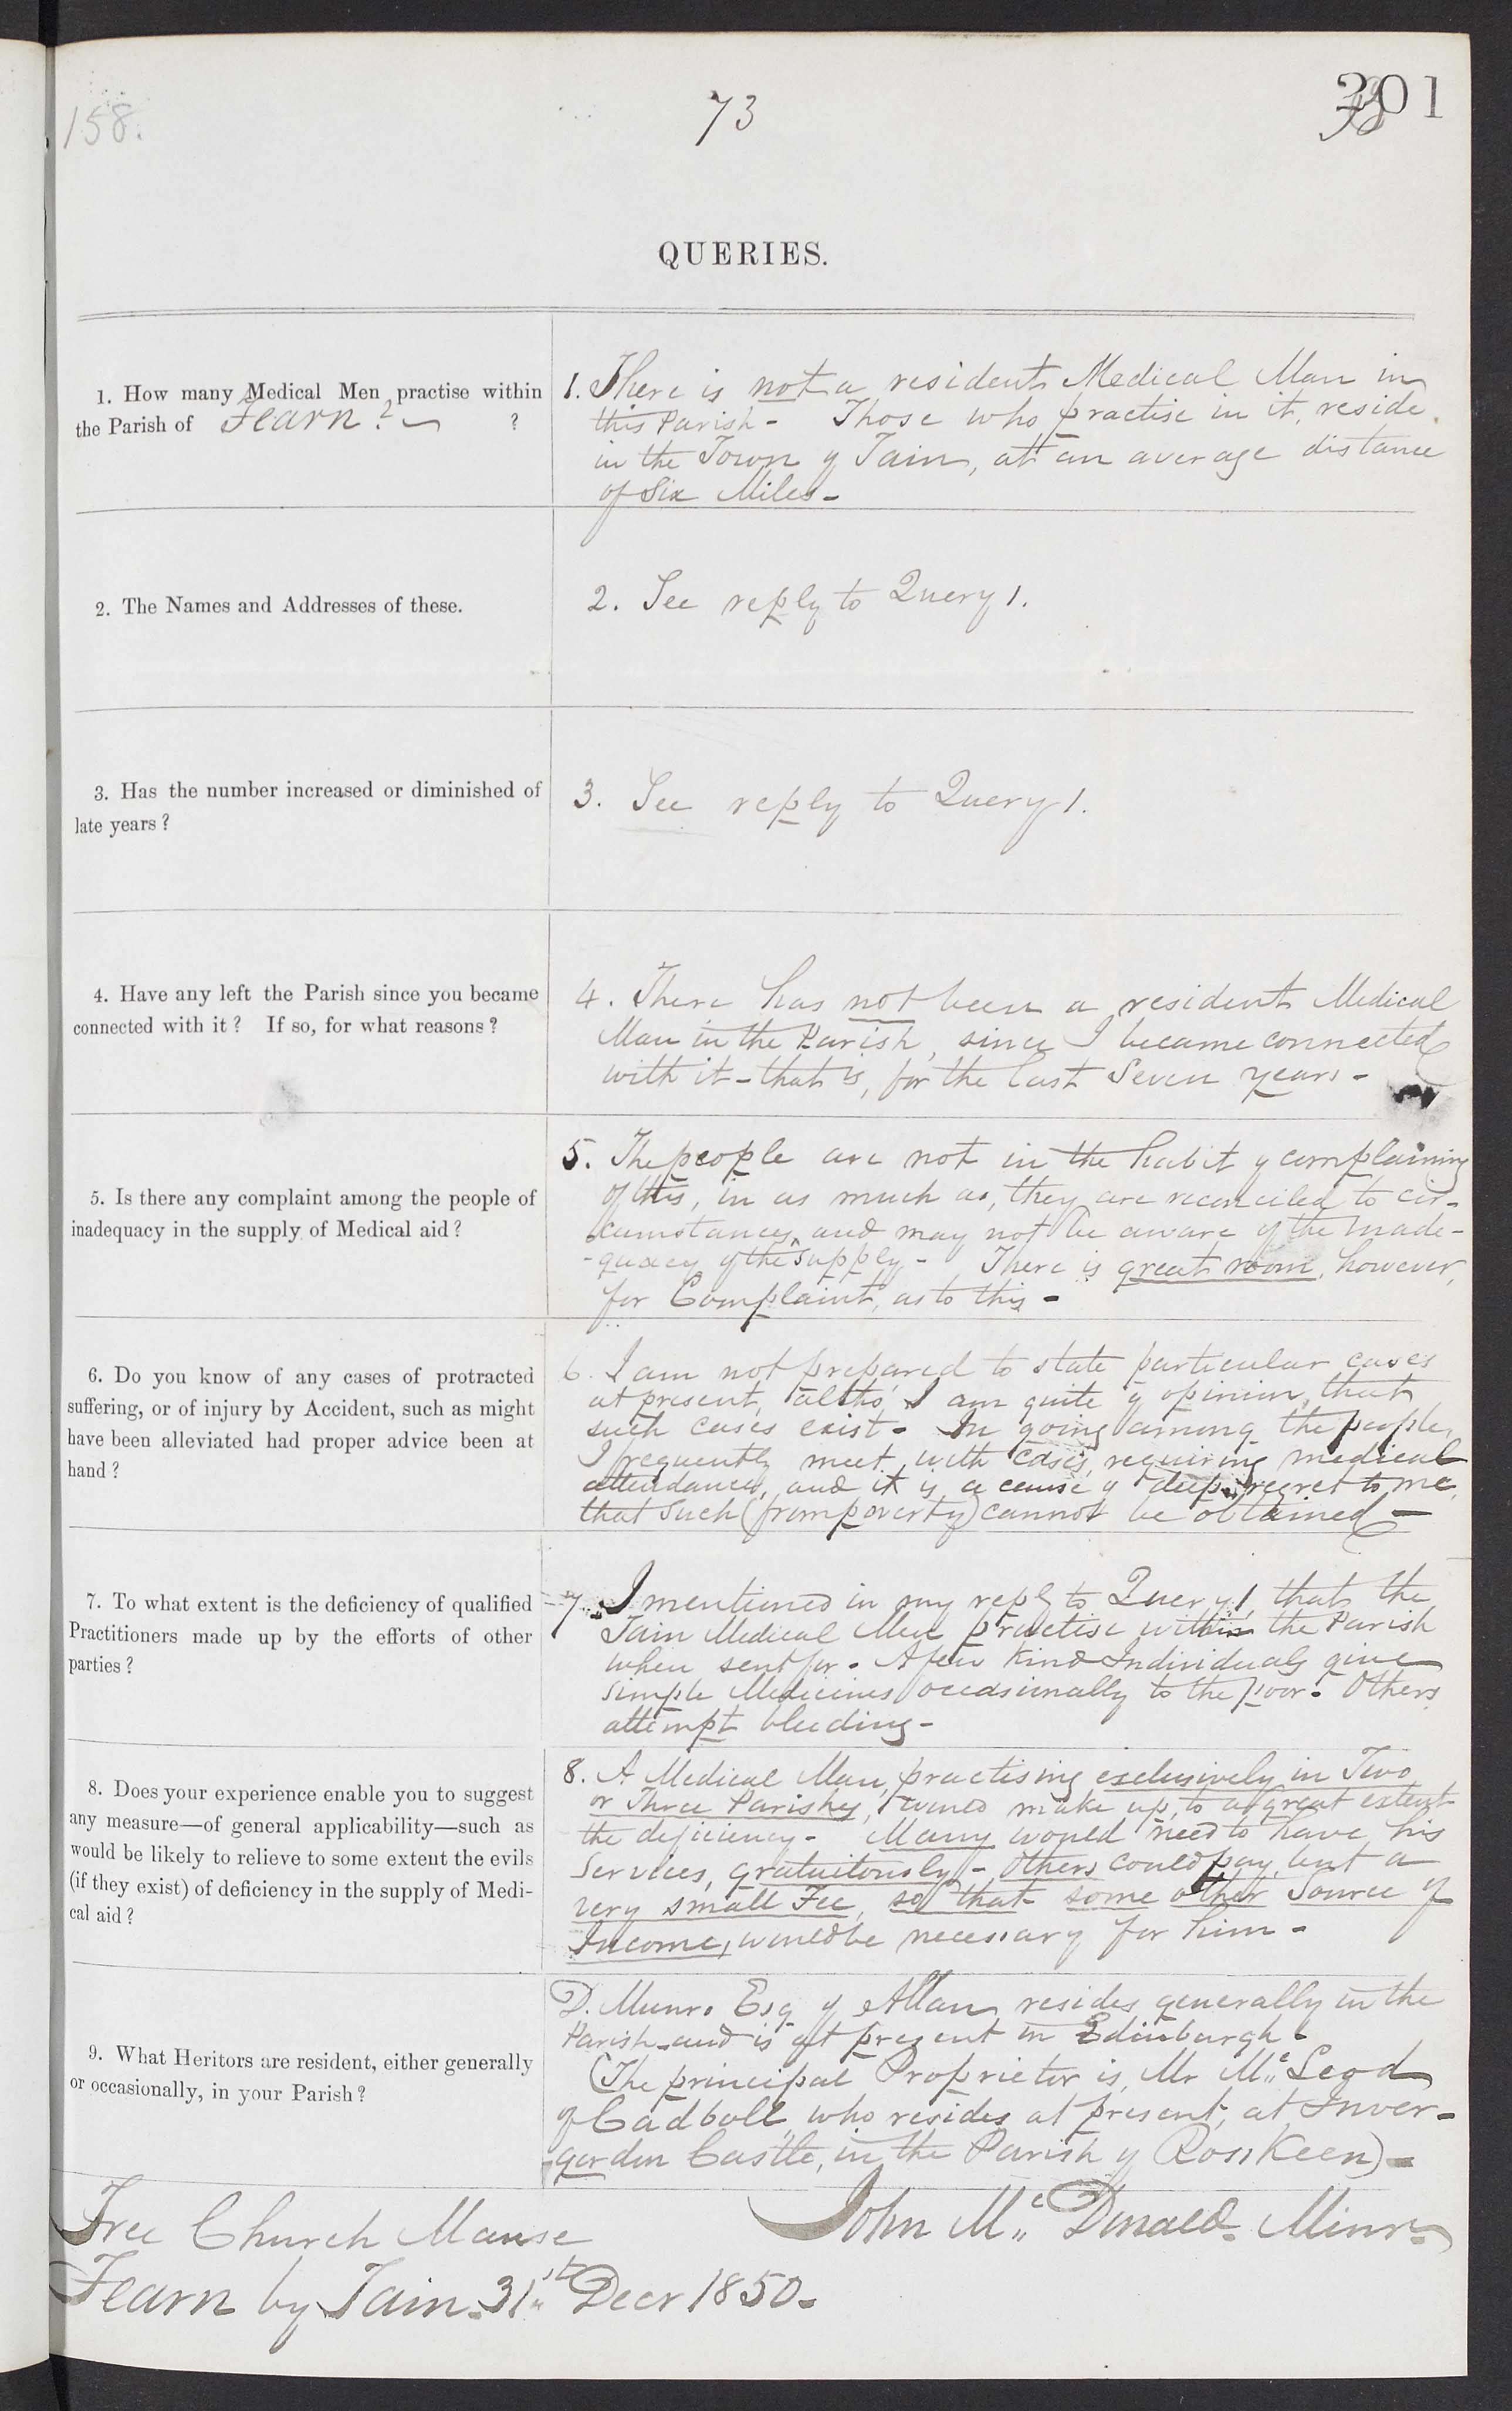 158.
73
201
QUERIES.
1. How many Medical Men practise within
the Parish of Fearn? ?
1. There is not a resident Medical Man in
this Parish - Those who practise in it, reside
in the Town of Tain, at an average distance
of Six Miles -
2. The Names and Addresses of these.
2. See reply to Query 1.
3. Has the number increased or diminished of
late years?
3. See reply to Query 1.
4. Have any left the Parish since you became
connected with it? If so, for what reasons?
4. There has not been a resident Medical
Man in the Parish, since I became connected
with it - that is, for the last Seven years -
5. Is there any complaint among the people of
inadequacy in the supply of Medical aid?
5. The people are not in the habit of complaining
of this, in as much as, they are reconciled to cir-
cumstances, and may not be aware of the inade-
-quacy of the supply - There is great room, however,
for Complaint, as to this -
6. Do you know of any cases of protracted
suffering, or of injury by Accident, such as might
have been alleviated had proper advice been at
hand?
6. I am not prepared to state particular cases
at present, altho' I am quite of opinion, that
such cases exist - In going among the people,
I frequently meet with cases requiring medical
attendance, and it is a cause of deep regret to me,
that such (from poverty) cannot be obtained -
7. To what extent is the deficiency of qualified
Practitioners made up by the efforts of other
parties?
7. I mentioned in my reply to Query 1, that the
Tain Medical Men practise within the Parish
when sent for - A few kind Individuals give
simple Medicines occasionally to the poor - Others
attempt bleeding -
8. Does your experience enable you to suggest
any measure—of general applicability—such as
would be likely to relieve to some extent the evils
(if they exist) of deficiency in the supply of Medi-
cal aid?
8. A Medical Man, practising exclusively in Two
or Three Parishes, would make up, to a great extent
the deficiency - Many would need to have his
Services, gratuitously - Others could pay, but a
very small Fee, so that some other Source of
Income, would be necessary for him -
9. What Heritors are resident, either generally
or occasionally, in your Parish?
D. Munro Esq of Allan, resides generally in the
Parish and is at present in Edinburgh -
(The principal Proprietor is, Mr McLeod
of Cadboll, who resides at present, at Inver-
-gordon Castle, in the Parish of Rosskeen) -
John McDonald - Minr.
Free Church Manse
Fearn by Tain - 31st Decr 1850 -